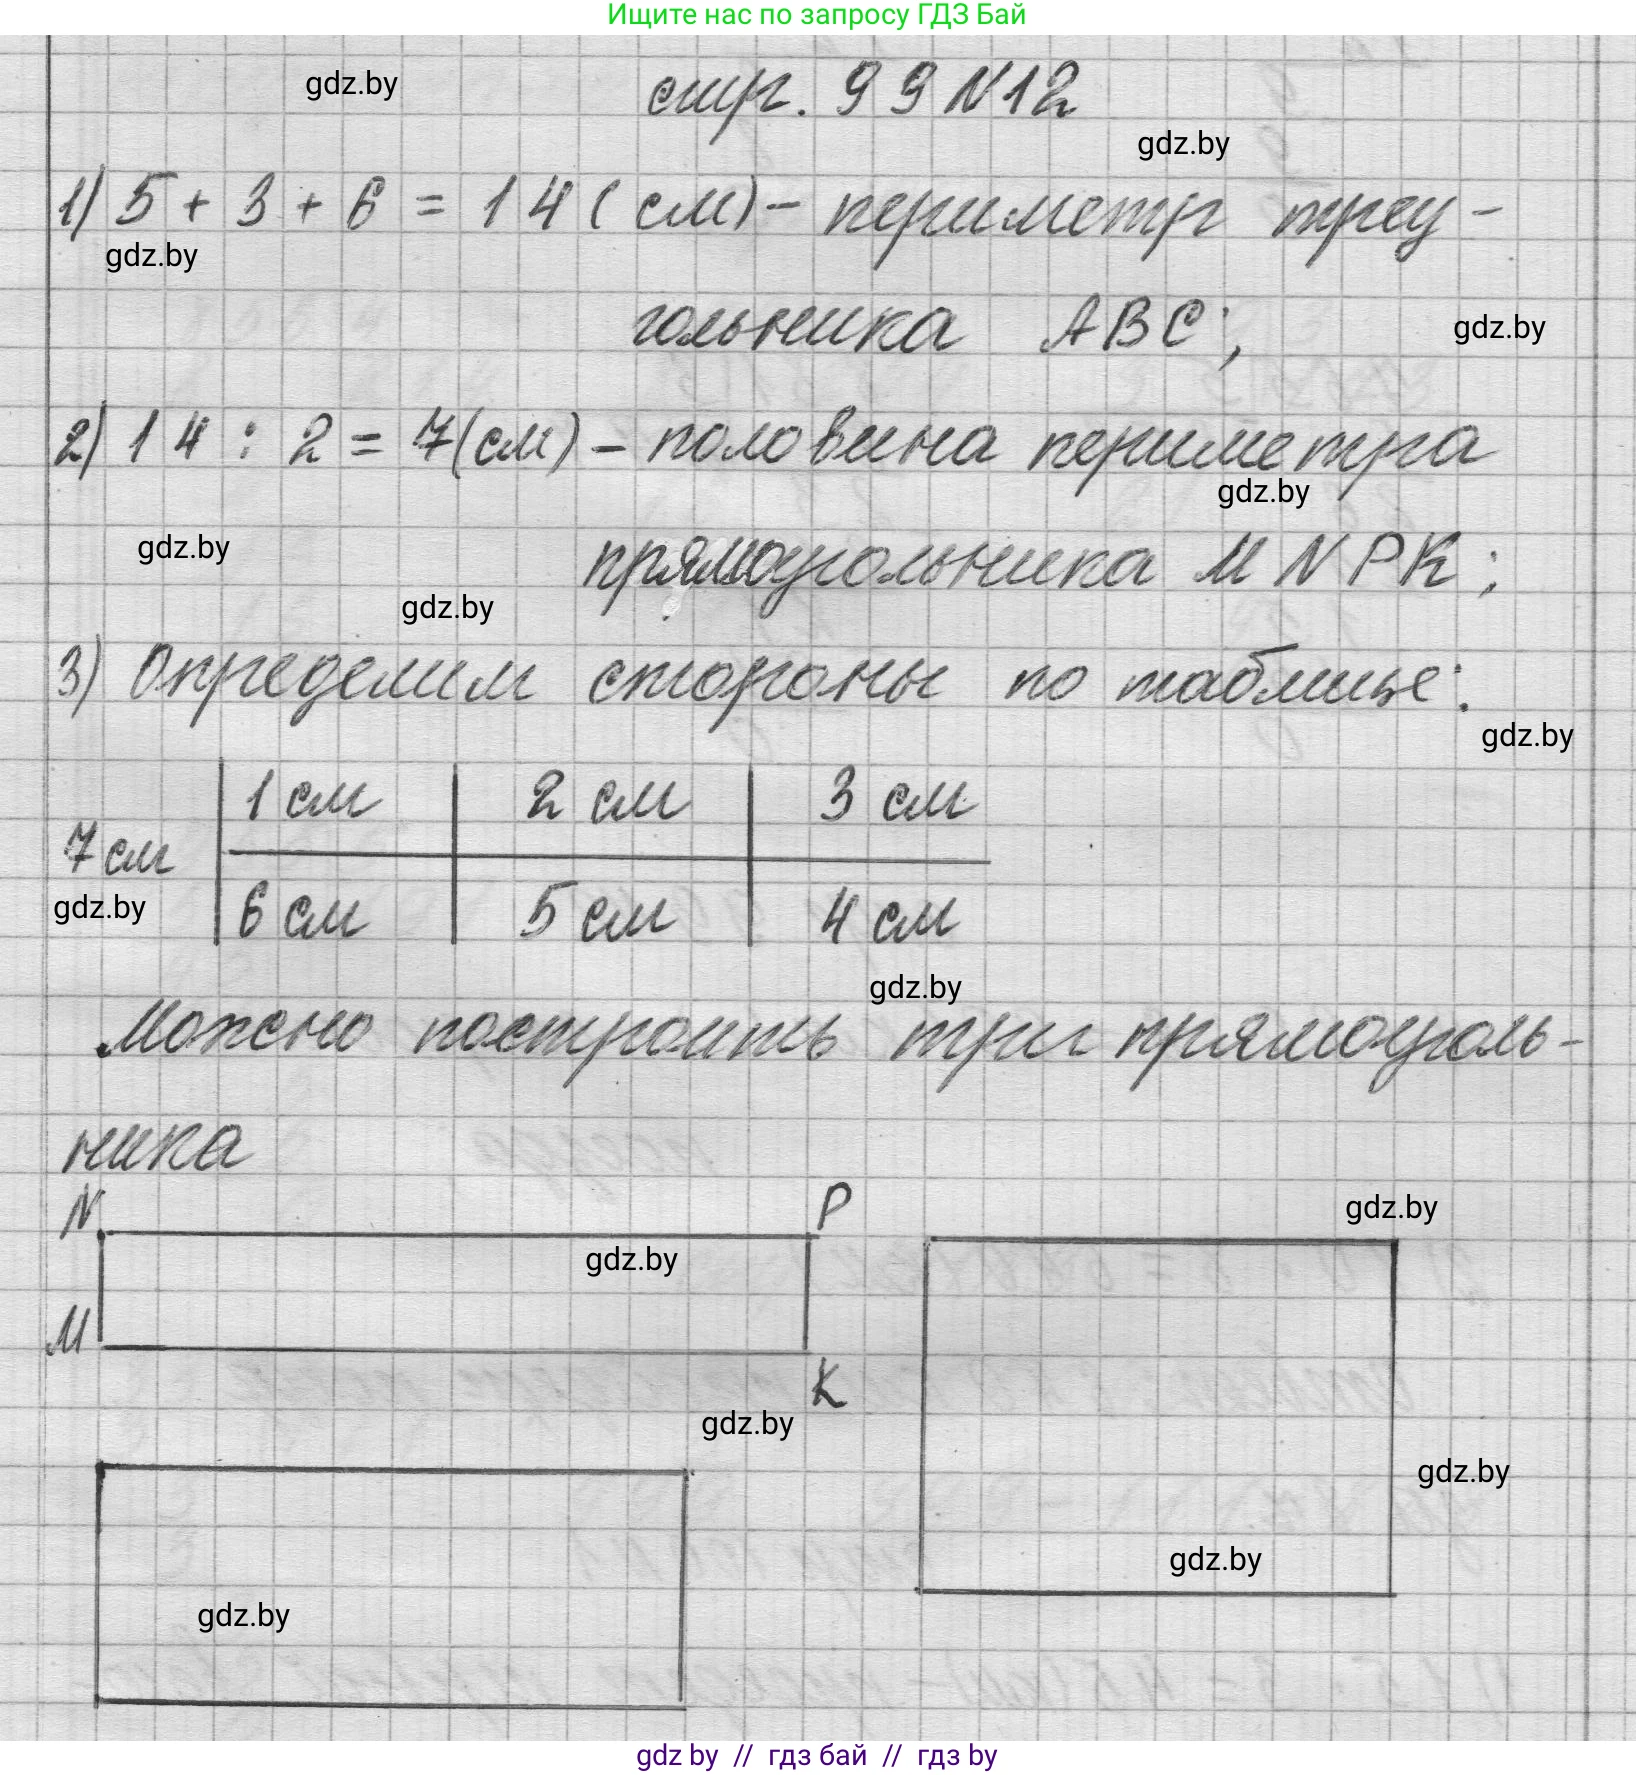 Ищите нас по запросу ГДЗ Бай
gdz.by
стр. 99 N12
gdz.by
1) 5 + 3 + 6 = 14 (см) - периметр треу-
gdz.by
гольника ABC;
gdz.by
2) 14 : 2 = 7 (см) - половина периметра
gdz.by
gdz.by
прямоугольника MNPK;
gdz.by
3) Определим стороны по таблице:
gdz.by
1 см 2 см 3 см
7 см
gdz.by
6 см 5 см 4 см
gdz.by
Можно построить три прямоуголь-
ника
N P
gdz.by
gdz.by
M
K
gdz.by
gdz.by
gdz.by
gdz.by
gdz by // гдз бай // гдз by